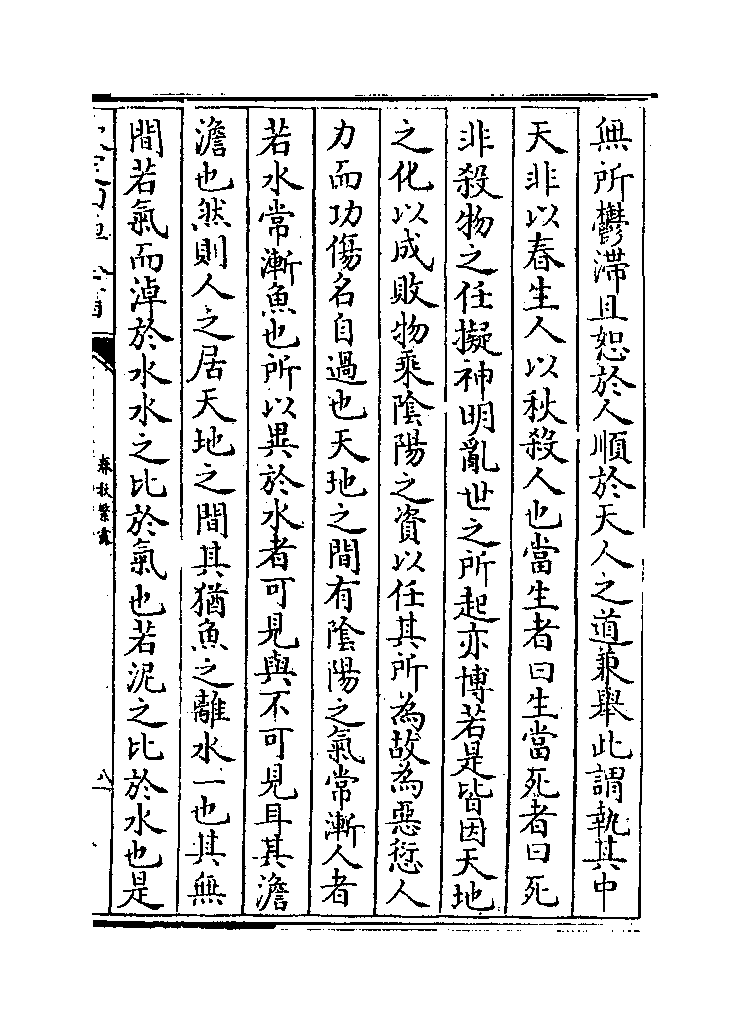 無所鬱滯且恕於人順於天人之道兼舉此謂執其中
天非以春生人以秋殺人也當生者曰生當死者曰死
非殺物之任擬神明亂世之所起亦博若是皆因天地
之化以成敗物乘陰陽之資以任其所為故為惡愆人
力而功傷名自過也天地之間有陰陽之氣常漸人者
若水常漸魚也所以異於水者可見與不可見耳其澹
澹也然則人之居天地之間其猶魚之離水一也其無
間若氣而淖於水水之比於氣也若泥之比於水也是
春秋繁露
八